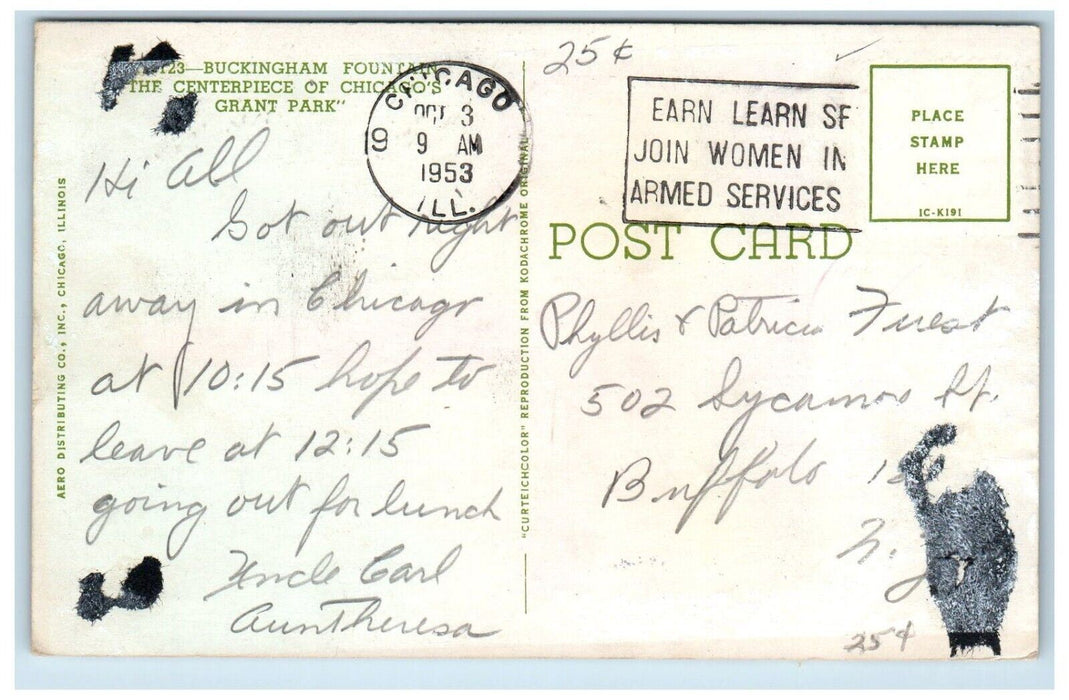 123—BUCKINGHAM FOUNTAIN
"THE CENTERPIECE OF CHICAGO'S
GRANT PARK"
Hi All
Got out right
away in Chicago
at 10:15 hope to
leave at 12:15
going out for lunch
Uncle Carl
Aun Theresa
AERO DISTRIBUTING CO., INC., CHICAGO, ILLINOIS
"CURTEICHCOLOR" REPRODUCTION FROM KODACHROME ORIGINAL
CHICAGO
OCT 3
9 9 AM
1953
ILL.
25¢
EARN LEARN SE
JOIN WOMEN IN
ARMED SERVICES
PLACE
STAMP
HERE
IC-K191
POST CARD
Phyllis & Patricia
502 Sycamore St.
Buffalo
N.
25¢